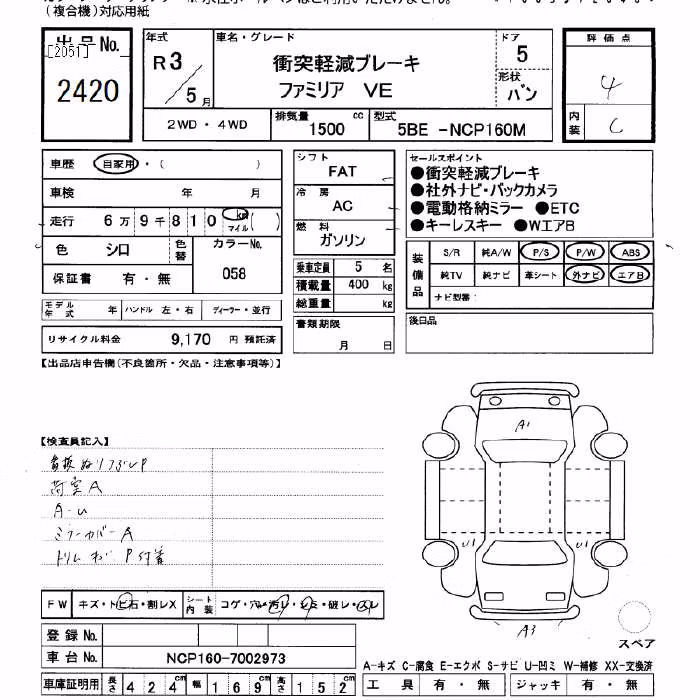 (複合機)対応用紙
出品No.
[2051]
2420
年式
R3/5月
車名・グレード
衝突軽減ブレーキ
ファミリア VE
ドア
5
形状
バン
評価点
4
内装
C
2WD・4WD
排気量
1500 cc
型式
5BE -NCP160M
車歴 自家用・( )
車検 年 月
走行 6万9千810 km マイル ( )
色 シロ 色替 カラーNo.
058
保証書 有・無
モデル年式 年 ハンドル 左・右 ディーラー・並行
リサイクル料金 9,170 円 預託済
シフト
FAT
冷房
AC
燃料
ガソリン
乗車定員 5 名
積載量 400 kg
総重量 kg
書類期限
月 日
セールスポイント
●衝突軽減ブレーキ
●社外ナビ・バックカメラ
●電動格納ミラー ●ETC
●キーレスキー ●WエアB
装備品
S/R 純A/W P/S P/W ABS
純TV 純ナビ 革シート 外ナビ エアB
ナビ型番:
後日品
【出品店申告欄(不良箇所・欠品・注意事項等)】
【検査員記入】
荷室A
A-U
ミラーカバーA
A1
U1
U1
A3
スペア
FW キズ・トビ石・割レX シート内装 コゲ・穴・汚レ・シミ・破レ・
登録No.
車台No. NCP160-7002973
車庫証明用 長さ 424cm 幅 169cm 高さ 152cm
A-キズ C-腐食 E-エクボ S-サビ U-凹ミ W-補修 XX-交換済
工具 有・無 ジャッキ 有・無